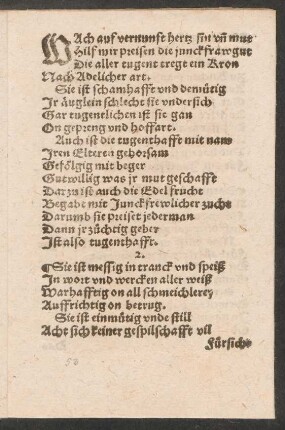 WAch auf vernunft hertz sin vñ mut
Hilf mir preisen die junckfraw gut
Die aller tugent trege ein Kron
Nach Adelicher art.
Sie ist schamhafft vnd demütig
Jr äuglein schlecht sie vndersich
Gar tugentlichen ist sie gan
On gepreng vnd hoffart.
Auch ist die tugenthafft mit nam
Jren Elteren gehorsam
Gefölgig mit beger
Gutwillig was jr mut geschafft
Darzu ist auch die Edel frucht
Begabt mit Junckfrewlicher zucht
Darumb sie preiset jederman
Dann jr züchtig geber
Jst also tugenthafft.
2.
¶Sie ist messig in tranck vnd speiß
Jn wort vnd wercken aller weiß
Warhafftig on all schmeichlerey
Auffrichtig on betrug.
Sie ist einmütig vnde still
Acht sich keiner gespilschafft vil
Fürsich
53